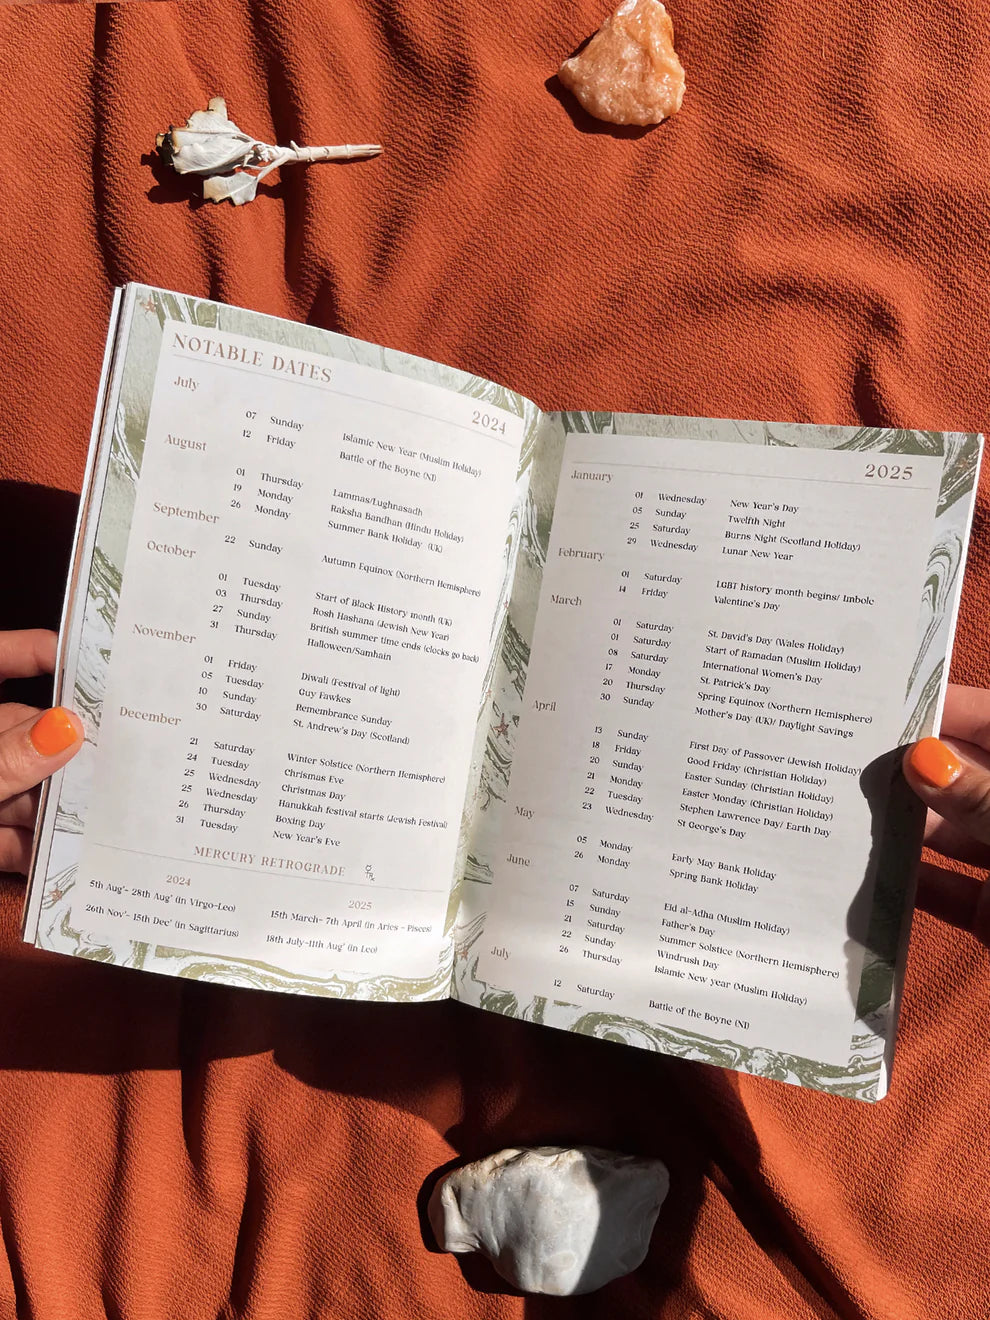 NOTABLE DATES
2024
July
07 Sunday Islamic New Year (Muslim Holiday)
12 Friday Battle of the Boyne (NI)
August
01 Thursday Lammas/Lughnasadh
19 Monday Raksha Bandhan (Hindu Holiday)
26 Monday Summer Bank Holiday (UK)
September
22 Sunday Autumn Equinox (Northern Hemisphere)
October
01 Tuesday Start of Black History month (UK)
03 Thursday Rosh Hashana (Jewish New Year)
27 Sunday British summer time ends (clocks go back)
31 Thursday Halloween/Samhain
November
01 Friday Diwali (Festival of light)
05 Tuesday Guy Fawkes
10 Sunday Remembrance Sunday
30 Saturday St. Andrew's Day (Scotland)
December
21 Saturday Winter Solstice (Northern Hemisphere)
24 Tuesday Chrismas Eve
25 Wednesday Christmas Day
25 Wednesday Hanukkah festival starts (Jewish Festival)
26 Thursday Boxing Day
31 Tuesday New Year's Eve
MERCURY RETROGRADE
2024
5th Aug'- 28th Aug' (in Virgo-Leo)
26th Nov'- 15th Dec' (in Sagittarius)
2025
15th March- 7th April (in Aries - Pisces)
18th July-11th Aug' (in Leo)
2025
January
01 Wednesday New Year's Day
05 Sunday Twelfth Night
25 Saturday Burns Night (Scotland Holiday)
29 Wednesday Lunar New Year
February
01 Saturday LGBT history month begins/ Imbolc
14 Friday Valentine's Day
March
01 Saturday St. David's Day (Wales Holiday)
01 Saturday Start of Ramadan (Muslim Holiday)
08 Saturday International Women's Day
17 Monday St. Patrick's Day
20 Thursday Spring Equinox (Northern Hemisphere)
30 Sunday Mother's Day (UK)/ Daylight Savings
April
13 Sunday First Day of Passover (Jewish Holiday)
18 Friday Good Friday (Christian Holiday)
20 Sunday Easter Sunday (Christian Holiday)
21 Monday Easter Monday (Christian Holiday)
22 Tuesday Stephen Lawrence Day/ Earth Day
23 Wednesday St George's Day
May
05 Monday Early May Bank Holiday
26 Monday Spring Bank Holiday
June
07 Saturday Eid al-Adha (Muslim Holiday)
15 Sunday Father's Day
21 Saturday Summer Solstice (Northern Hemisphere)
22 Sunday Windrush Day
26 Thursday Islamic New year (Muslim Holiday)
July
12 Saturday Battle of the Boyne (NI)